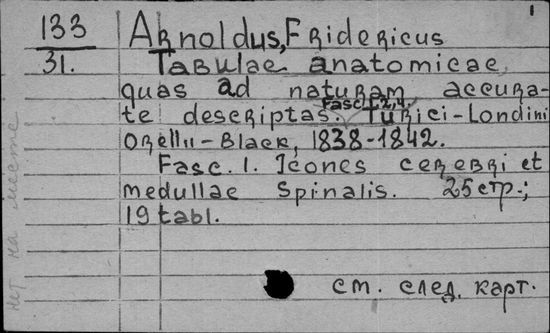 1
133
31.
Arnoldus, Fridericus
Tabulae anatomicae,
quas ad naturam accura-
te descriptas. Fasc. 1, 2, 4. Turici-Londini
Orellii-Black, 1838-1842.
Fasc. 1. Icones cerebri et
medullae spinalis. 25 стр.;
19 tabl.
см. след. карт.
нет на месте